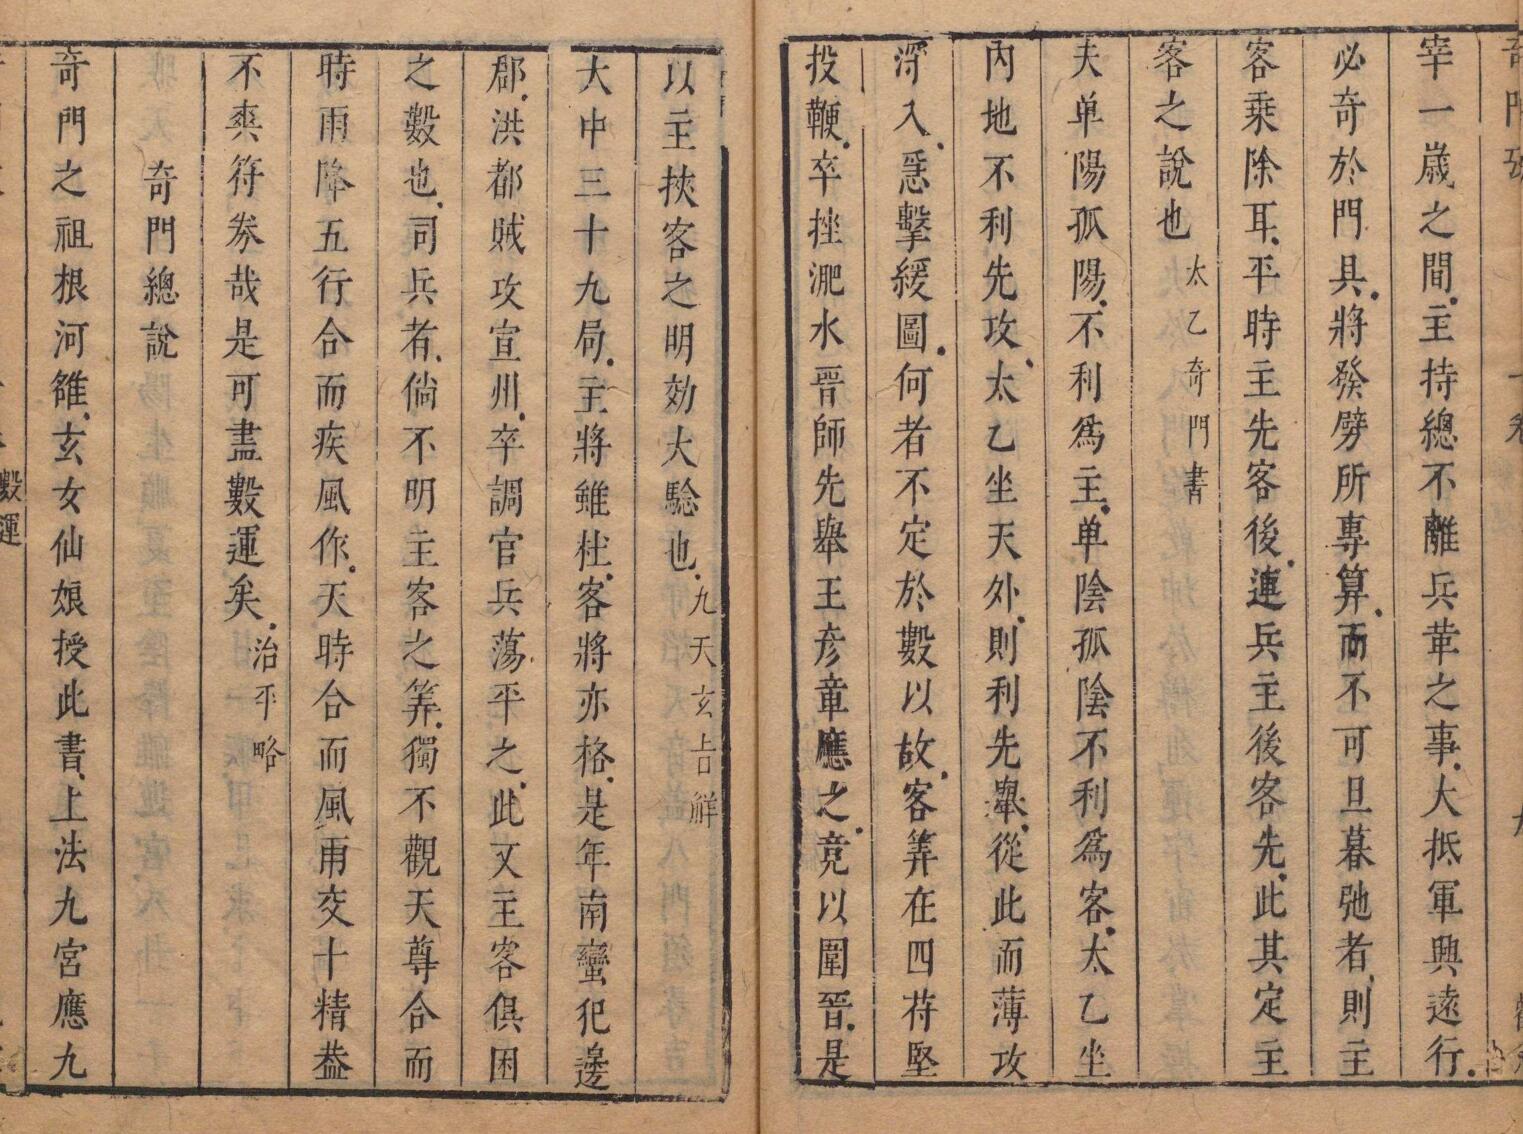 宰一嵗之間主持總不離兵革之事大抵軍興遠行
必奇於門具將發劈所專算而不可旦暮弛者則主
客乘除耳平時主先客後連兵主後客先此其定主
客之說也太乙奇門書
夫单陽孤陽不利爲主单陰孤陰不利爲客太乙坐
內地不利先攻太乙坐天外則利先舉從此而薄攻
深入急擊緩圖何者不定於數以故客筭在四苻堅
投鞭卒挫淝水晉師先舉王彦章應之竟以圍晉是
以主挾客之明効大騐也九天玄占觧
大中三十九局主將雖杜客將亦格是年南蠻犯邊
郡洪都賊攻宣州卒調官兵蕩平之此又主客俱困
之數也司兵者倘不明主客之筭獨不觀天尊合而
時雨降五行合而疾風作天時合而風雨交十精葢
不爽符券哉是可盡數運矣治平略
奇門總説
奇門之祖根河雒玄女仙娘授此書上法九宮應九
數運